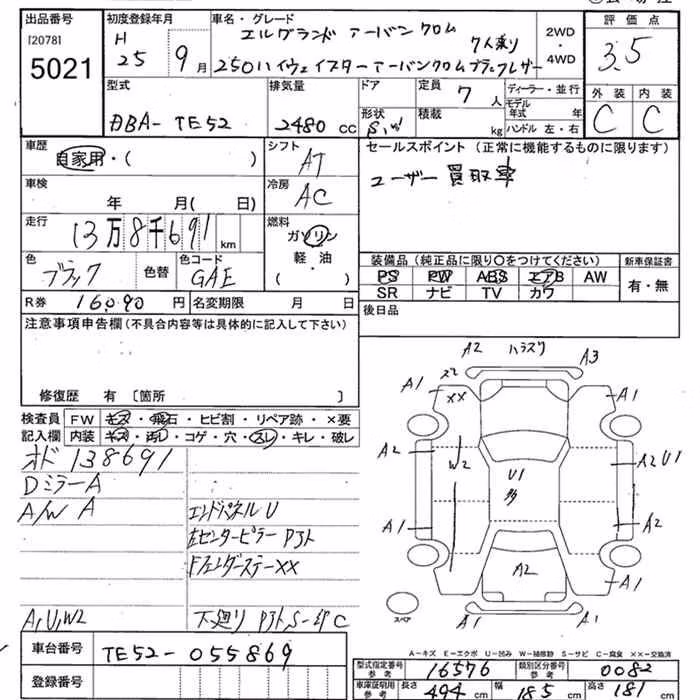 出品番号
[2078]
5021
初度登録年月
H
25 9月
車名・グレード
エルグランド アーバンクロム
7人乗り
250ハイウェイスターアーバンクロムブラックレザー
2WD
・
4WD
評価点
3.5
外装 内装
C C
型式
DBA-TE52
排気量
2480 cc
ドア
形状
5W
定員
7人
積載
kg
ディーラー・並行
モデル
年式 年
ハンドル 左・右
車歴
自家用・( )
シフト
AT
車検
年 月( 日)
冷房
AC
走行
13万8千691 km
燃料
ガソリン
軽・油
( )
色
ブラック
色替
色コード
GAE
R券 16,090 円
名変期限 月 日
セールスポイント(正常に機能するものに限ります)
ユーザー買取車
装備品(純正品に限り○をつけてください)
新車保証書
PS PW ABS エアB AW
有・無
SR ナビ TV カワ
後日品
注意事項申告欄(不具合内容等は具体的に記入して下さい)
修復歴 有〔箇所 〕
検査員
記入欄
FW キズ・飛石・ヒビ割・リペア跡・×要
内装 キズ・汚レ・コゲ・穴・スレ・キレ・破レ
オド 138691
Dミラー A
A/W A
エンドパネル U
左センターピラー P跡
Fフェンダーステー××
A,U,W2
下廻り P跡、S-錆 C
A2 ハラズリ A3
ズミ
××
A1 A1
A2 W2 U1 多 A2 U1
A1 A2
A2
A1
スペア
A1 A1
A-キズ E-エクボ U-凹み W-補修跡 S-サビ C-腐食 ××-交換済
車台番号 TE52-055869
登録番号
型式指定番号
参考
16576
類別区分番号
参考
0082
車庫証明用
参考
長さ 494 cm 幅 185 cm 高さ 181 cm